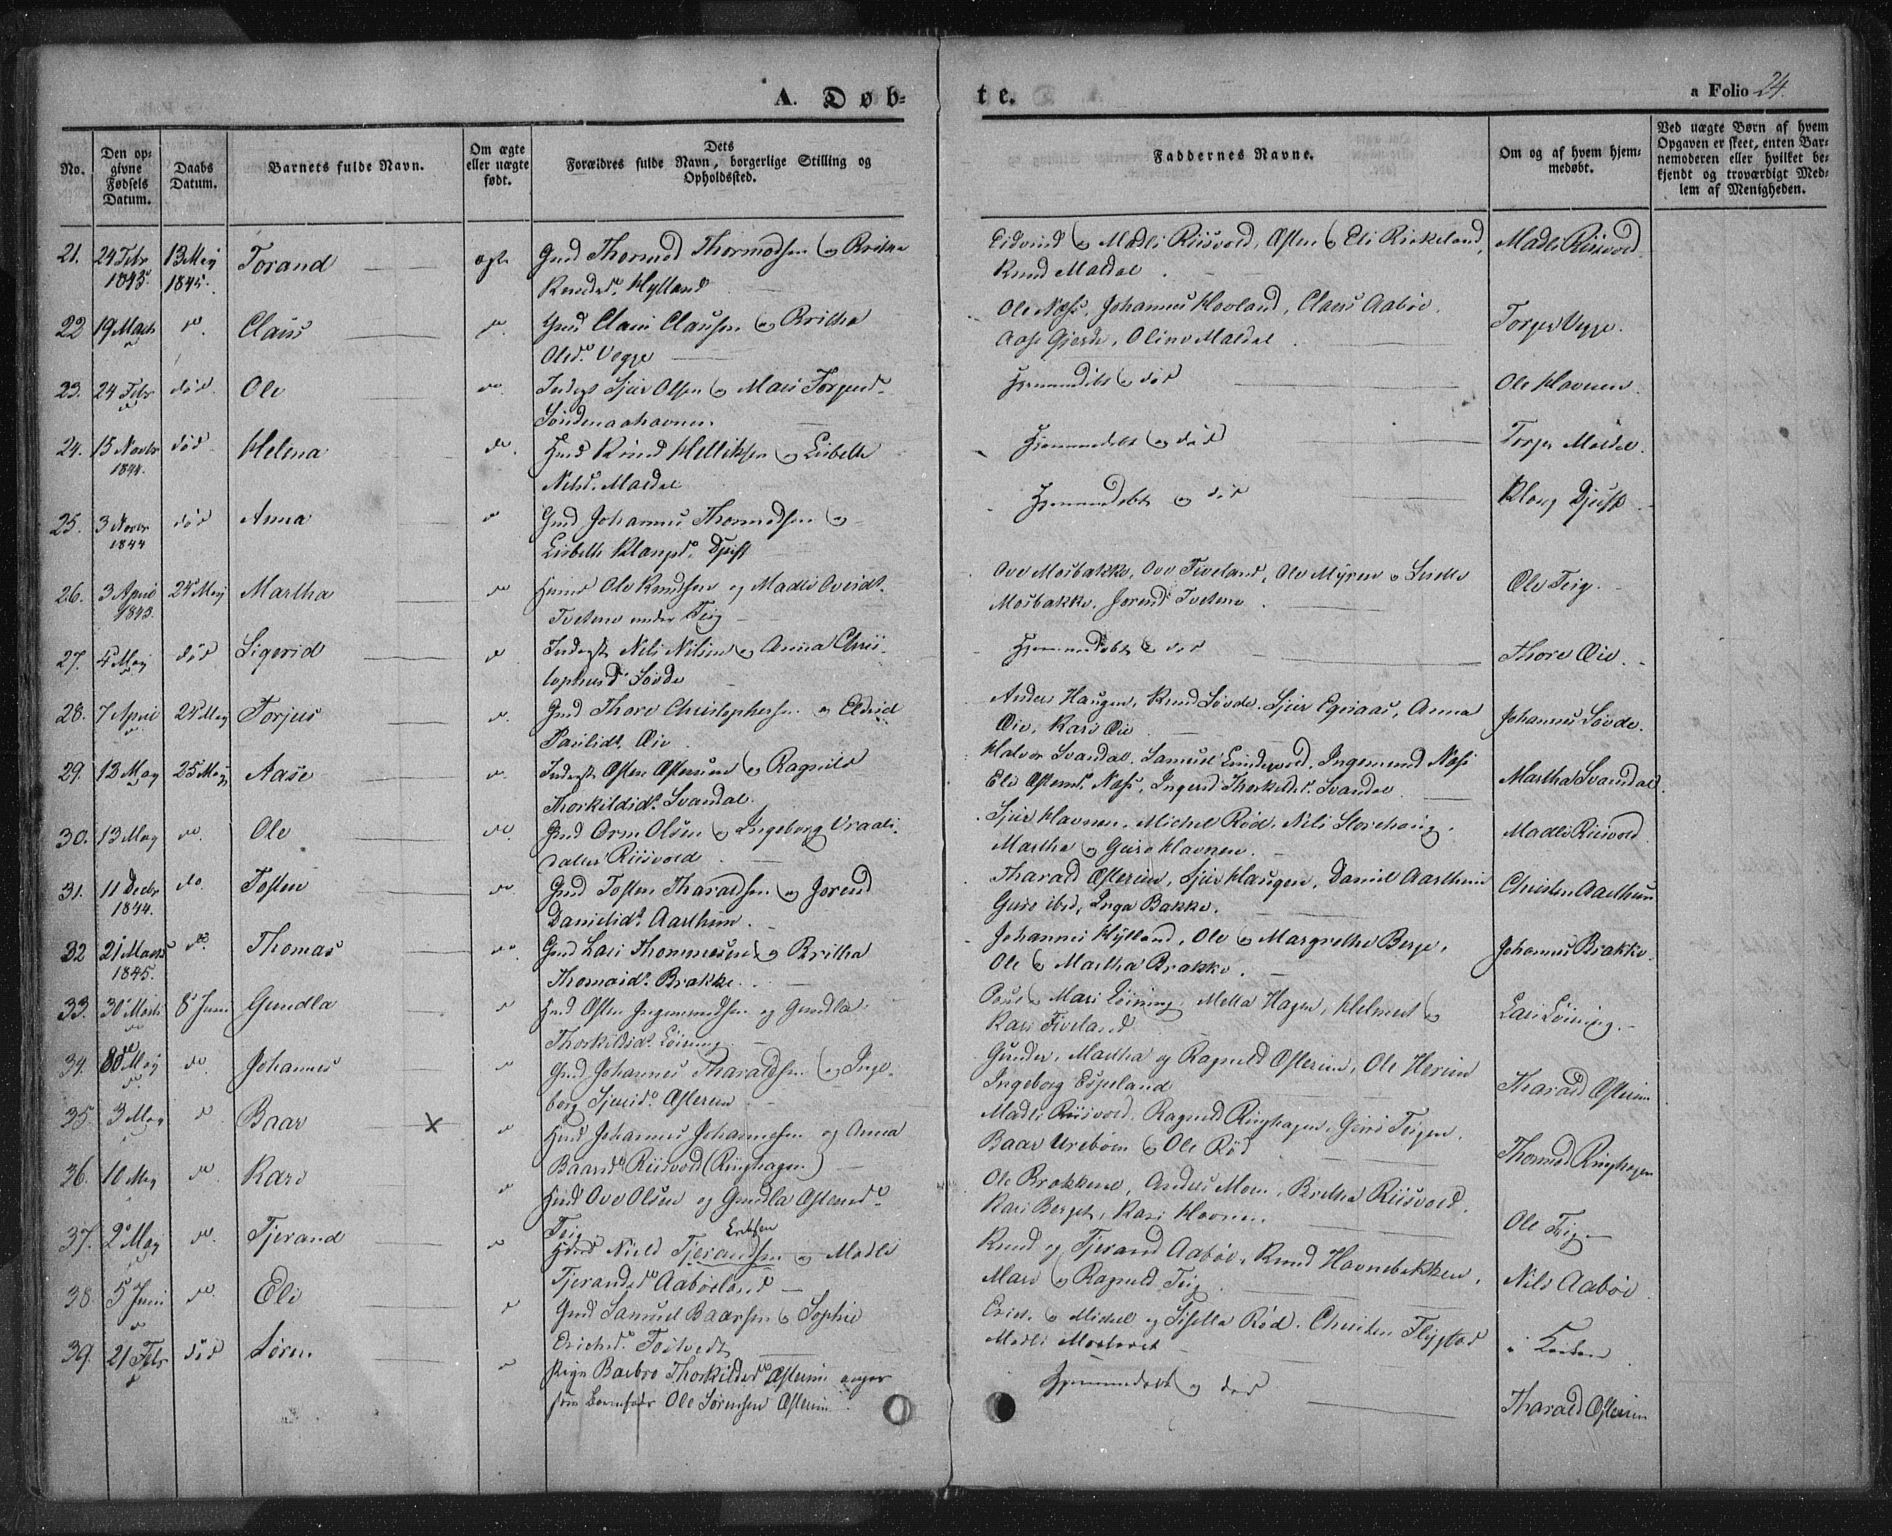 A. Døb-
te.
a Folio 24.
No.
Den op-
givne
Fødsels
Datum.
Daabs
Datum.
Barnets fulde Navn.
Om ægte
eller uægte
født.
Dets
Forældres fulde Navn, borgerlige Stilling og
Opholdssted.
Faddernes Navne.
Om og af hvem hjem-
medøbt.
Ved uægte Børn af hvem
Opgaven er skeet, enten Bar-
nemoderen eller hvilket be-
kjendt og troværdigt Med-
lem af Menigheden.
21. 24 Febr 1845. 13 Maj 1845. Torand ægte Gmd Thormod Thormodsen og Britha
Knudsd. Hylland
Eidvind og Madli Riisvold, Østen og Eli Birkeland,
Knud Maldal.
Madli Riisvold.
22 19 Marts do. Claus do. Gmd Claus Clausen og Britha
Olsd. Vegge
Ole Næss, Johannes Hovland, Claus Aabøe,
Aase Gjerde, Oline Maldal.
Torger Vegge.
23. 24 Febr do død. Ole do. Inderst Sjur Olsen og Mari Torgersd.
Søndenaahavnen.
Hjemmedøbt og død
Ole Havnen.
24. 15 Novbr 1844. død Helena do. Hmd Knud Helliksen og Lisbeth
Nilsd. Maldal
Hjemmedøbt og død
Torger Maldal.
25. 3 Novbr 1844 død Anna do Gmd Johannes Thormodsen og
Lisbeth
Hjemmedøbt og død
26. 3 April 1845. 24 Maj Martha do Hmd Ole Knudsen og Madli Ovesdt.
Tvetene under Teig
Ove Mosbakke, Ove Tveland, Ole Myren og Sisella
Mosbakke, Jorend Tvetene.
Ole Teig.
27. 4 Maj død Sigerid do Inderst Nils Nilsen og Anna Chris-
tophersd. Løvde
Hjemmedøbt & død
Thore Øie.
28. 7 April do 24 Maj Torjus do. Gmd Thore Christophersen og Eldrid
Paulsdt. Øie
Anders Haugen, Knud Løvde, Sjur Egeraas, Anna
Øie, Kari Øie
Johannes Løvde.
29. 13 Maj 25 Maj Aase do. Inderst Østen Østensen og Ragnild
Thorkildsdt. Svandal.
Halvor Svandal, Samuel Lindesvold, Ingemund Næss
Eli Østensd. Næss, Ingerid Thorkildsd. Svandal.
Martha Svandal.
30. 13 Maj do. Ole do. Gmd Orm Olsen og Ingeborg
Riisvold.
Sjur Havnen, Michel Rød, Nils Storhaug,
Martha og Guro Havnen.
Madli Riisvold.
31. 11 Decbr 1844. do. Tosten do Gmd Tosten Tharaldsen og Jorend
Danielsdt. Aarthun.
Tharald Østerim, Sjur Haugen, Daniel Aarthun
Guro ibid, Inga Bakke.
Christen Aarthun
32 21 Marts 1845. do. Thomas do. Gmd Lars Thommesen og Britha
Thomasd. Brakke.
Johannes Hylland, Ole og Margrethe Berge,
Ole og Martha Brakke.
Johannes Brakke.
33. 30 Marts do 8 Juni Gundla do Hmd Østen Ingemundsen og Gundla
Thorkildsdt. Løining.
Poul og Mari Løining, Metta Hagen, Helmert og
Kari Tveland
Lars Løining.
34. 8de Maj do do. Johannes do Gmd Johannes Tharaldsen og Inge-
borg Sjursd. Østerim
Gunder, Martha og Ragnild Østerim, Ole Herim
Ingeborg Espeland
Tharald Østerim
35. 3 Maj do Baar x do Hmd Johannes Johannesen og Anna
Baarsd. Riisvold (Ringhagen)
Madli Riisvold, Ragnild Ringhagen, Guri Teigen,
Baar Urebøen og Ole Rød
Thormod Ringhagen
36. 10 Maj do. Kari do Hmd Ove Olsen og Gundla Østensd.
Teig
Ole Brakkene, Anders Moen, Britha Riisvold,
Kari Berget, Kari Havnen
Ole Teig
37. 2 Maj do do. Tjerand do Hmd Nils Tjerandsen Eriksen og Madli
Tjerandsd. Aabøeland
Knud og Tjerand Aabøe, Knud Havnebakken,
Mari og Ragnild Teig
Nils Aabøe
38. 5 Juni do do. Eli do Gmd Samuel Baarsen og Sophie
Erichsd. Tostvedt
Erich og Michel og Sisella Rød, Christen Flygstad
Madli
i Kirken
39. 21 Febr do død Søren do Pige Baebro Thorkildsd. Østerim angav
som Barnefader Ole Sørensen Østerim.
Hjemmedøbt og død
Tharald Østerim